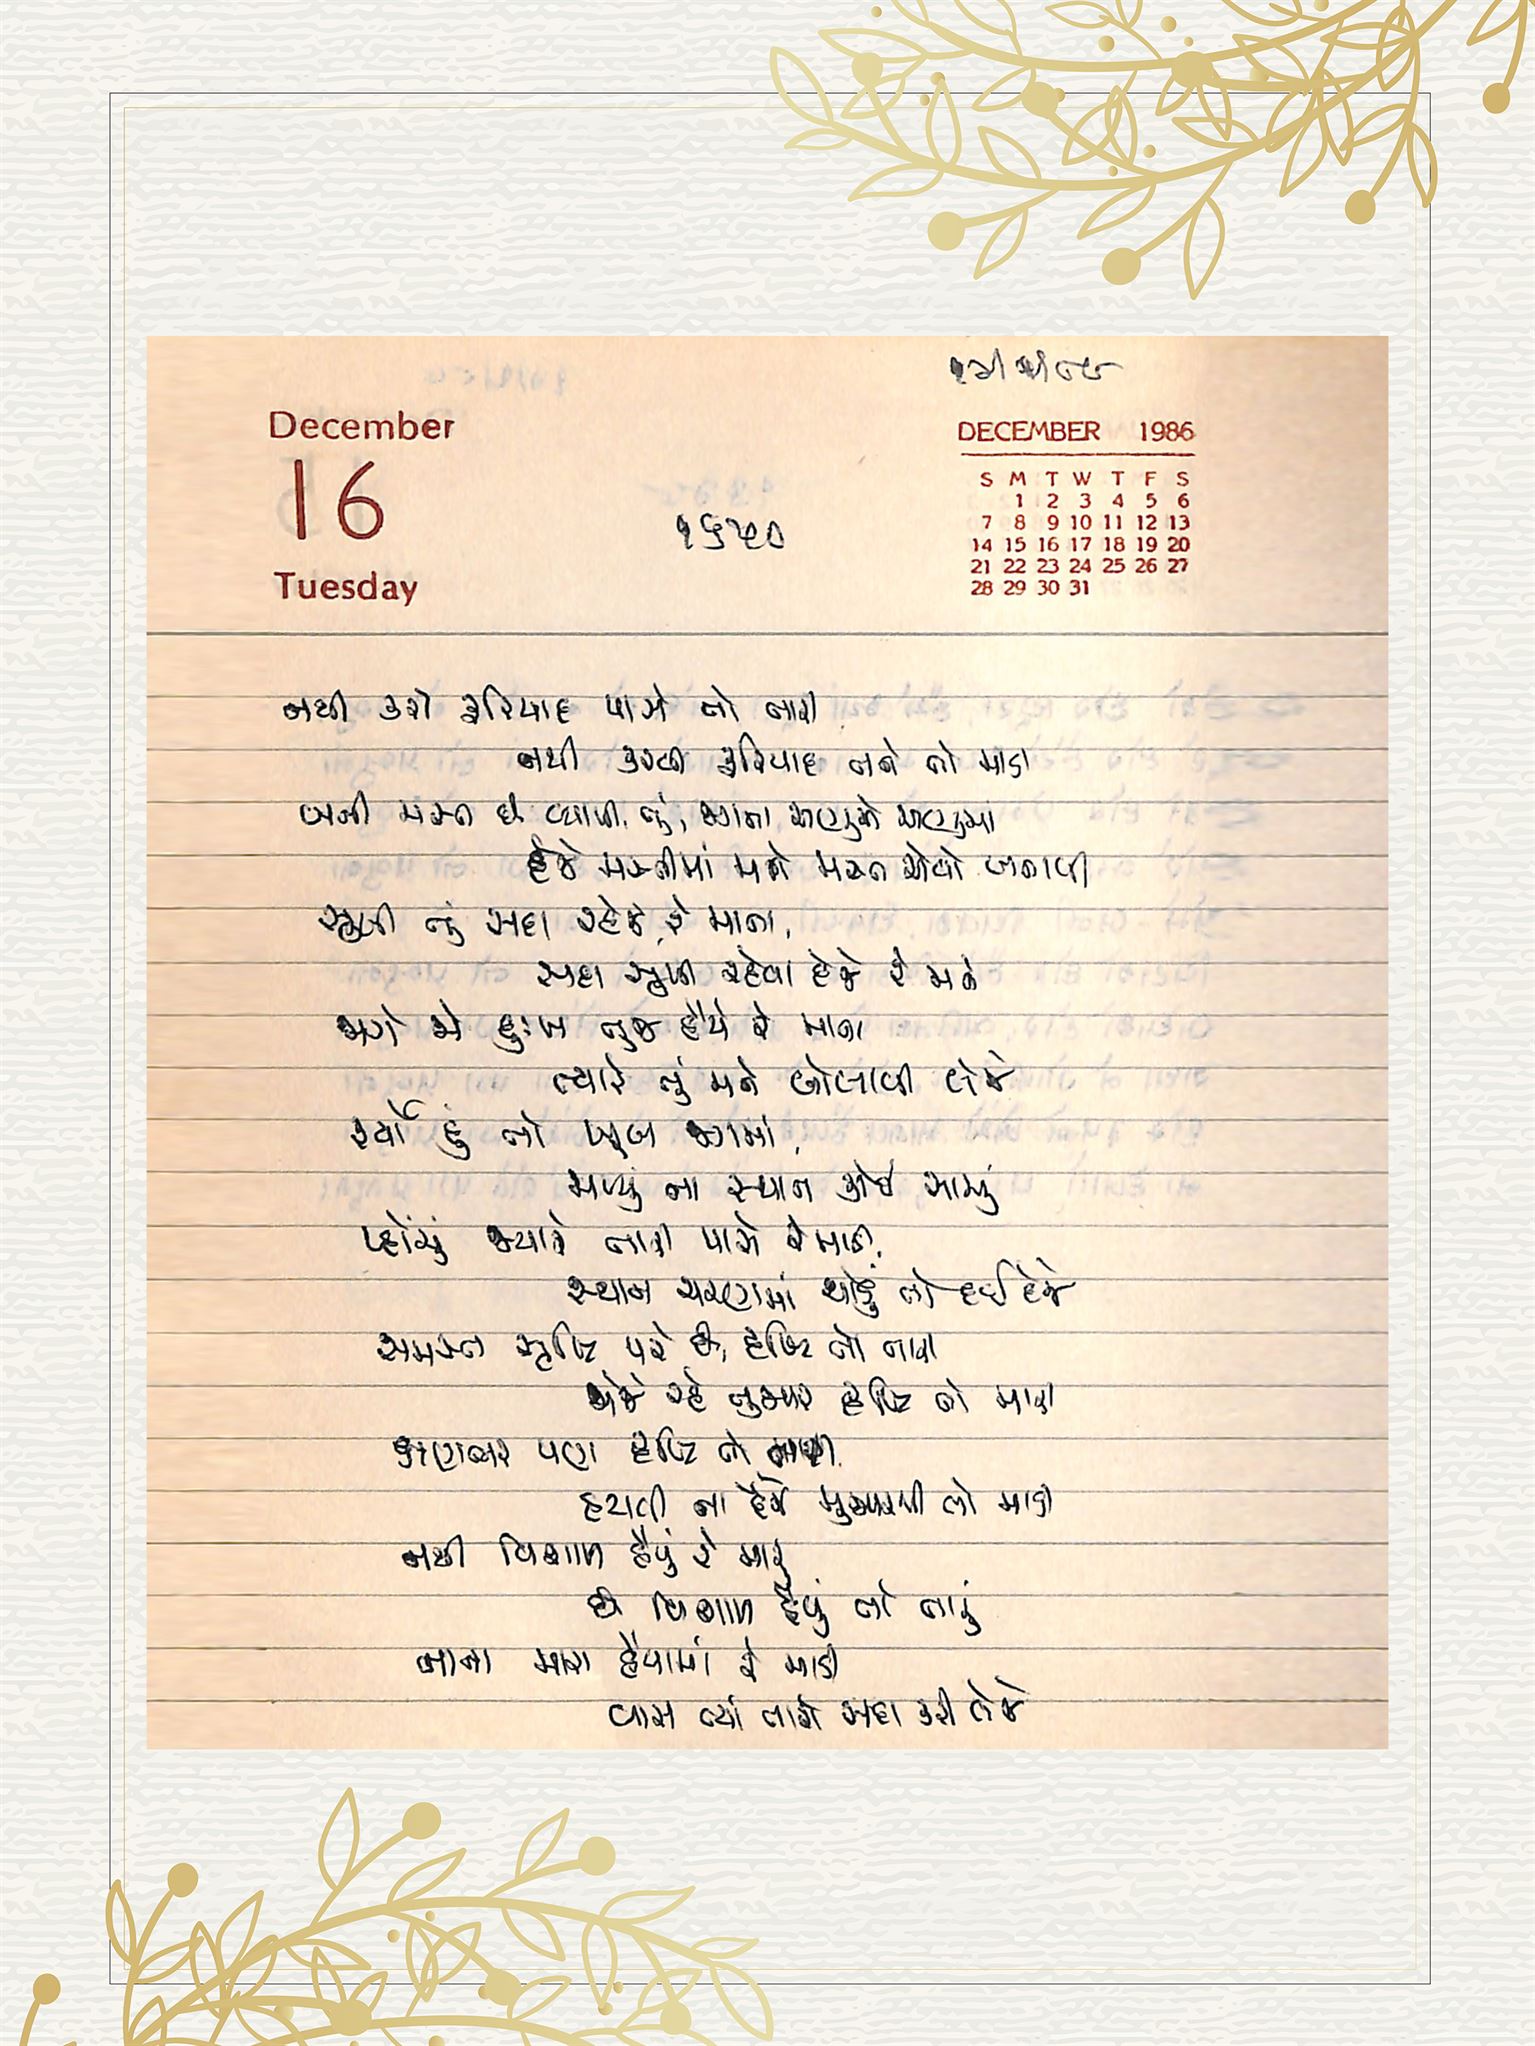 December
16
Tuesday
૧૬૫૦
DECEMBER 1986
S M T W T F S
1 2 3 4 5 6
7 8 9 10 11 12 13
14 15 16 17 18 19 20
21 22 23 24 25 26 27
28 29 30 31
નથી કરી ફરિયાદ પાસે તો તારી
નથી કરવી ફરિયાદ તને તો માડી
બની મસ્ત છે વ્યાપી તું, જગના અણુએ અણુમાં
દેજે મસ્તીમાં મને મસ્ત એવો બનાવી
સુખી તું સદા રહેજે રે માતા,
સદા સુખી રહેવા દેજે રે મને
જાગે જો દુઃખ તુજ હૈયે રે માતા
ત્યારે તું મને બોલાવી લેજે
ફર્યો હું તો ખૂબ જગમાં,
મળ્યું ના સ્થાન કોઈ સાચું
પ્હોંચું જ્યારે તારી પાસે રે માડી,
સ્થાન ચરણમાં થોડું તો દઈ દેજે
સમસ્ત સૃષ્ટિ પરે છે, દૃષ્ટિ તો તારી
જોજે રહે તુજ પર દૃષ્ટિ તો મારી
ક્ષણભર પણ દૃષ્ટિ તો તારી
હટાવી ના દેજે મુજ પરથી તો માડી
નથી વિશાળ હૈયું રે મારું
છે વિશાળ હૈયું તો તારું
નાના મારા હૈયામાં રે માડી
વાસ ત્યાં તારો સદા કરી લેજે